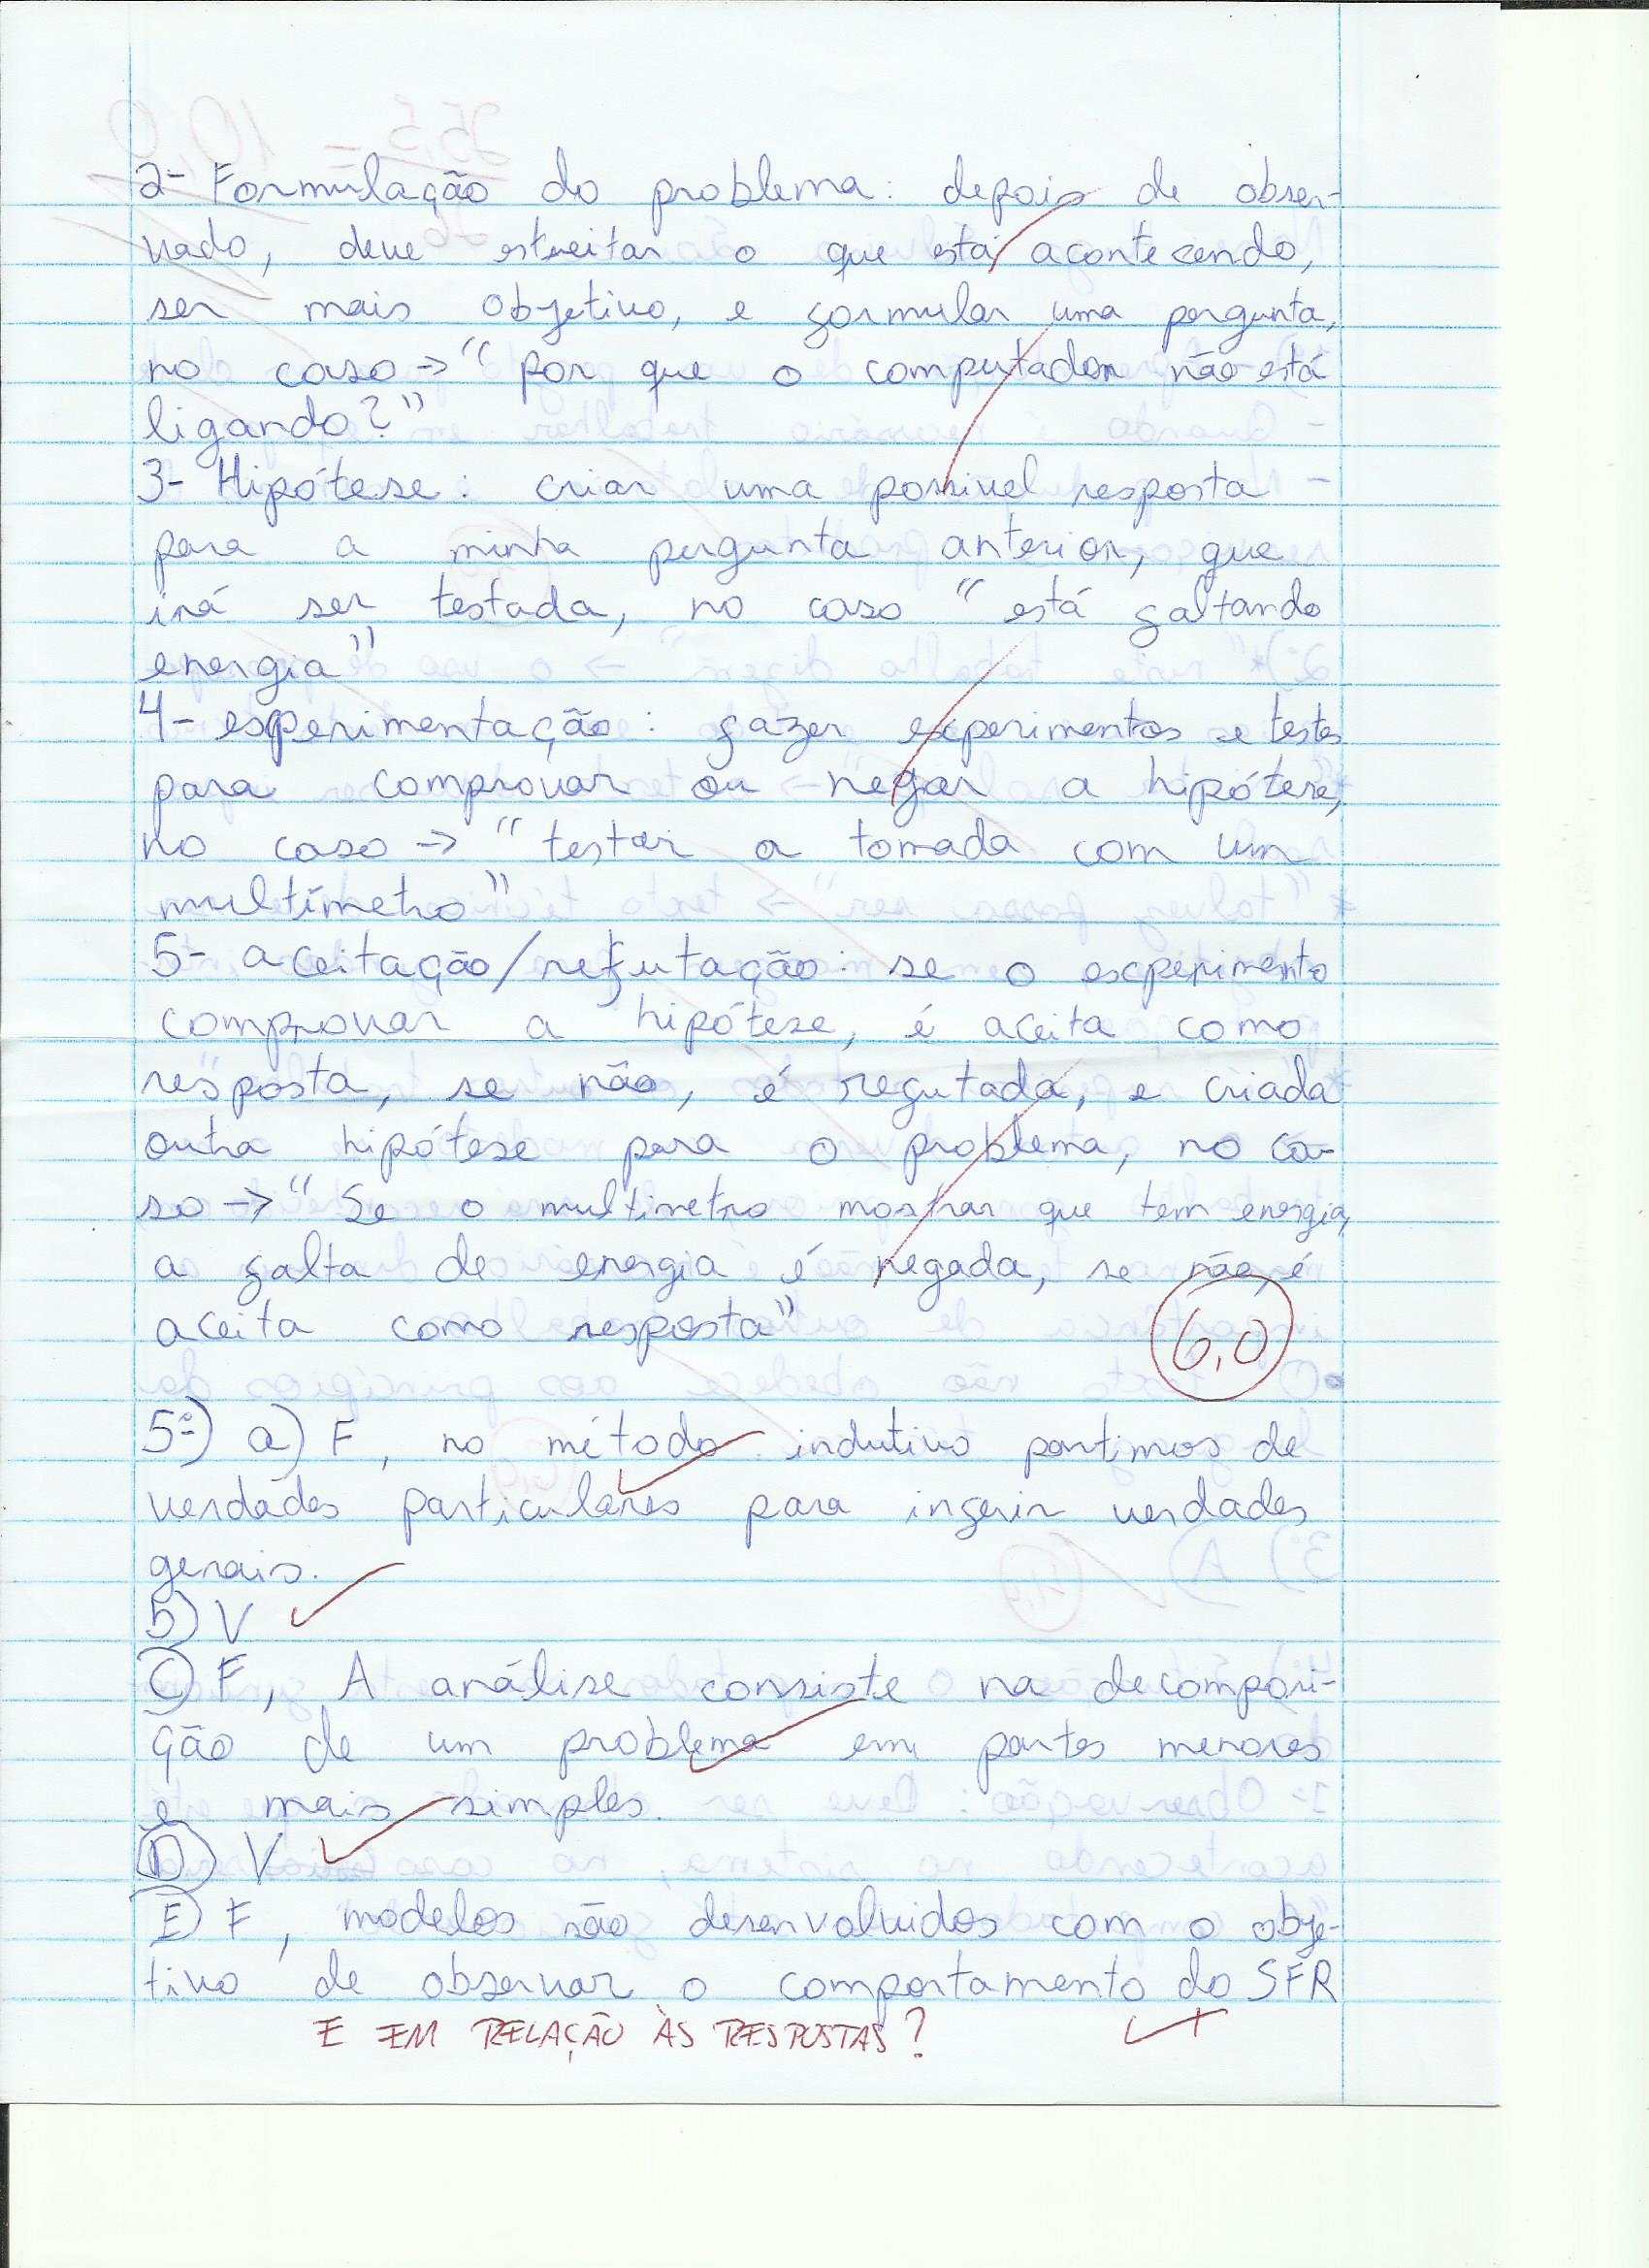 2- Formulação do problema: depois de obser-
vado, deve estreitar o que está acontecendo,
ser mais objetivo, e formular uma pergunta,
no caso → "por que o computador não está
ligando?"
3- Hipótese: criar uma possível resposta
para a minha pergunta anterior, que
irá ser testada, no caso "está faltando
energia"
4- experimentação: fazer experimentos e testes
para comprovar ou negar a hipótese,
no caso → "testar a tomada com um
multímetro"
5- aceitação/refutação: se o experimento
comprovar a hipótese, é aceita como
resposta, se não, é refutada, e criada
outra hipótese para o problema, no ca-
so → "Se o multimetro mostrar que tem energia,
a falta de energia é negada, se não, é
aceita como resposta"
6,0
5º) a) F, no método indutivo partimos de
verdades particulares para inferir verdades
gerais.
b) V
C) F, A análise consiste na decomposi-
ção de um problema em partes menores
e mais simples.
D) V
E) F, modelos são desenvolvidos com o obje-
tivo de observar o comportamento do SFR
E EM RELAÇÃO ÀS RESPOSTAS?